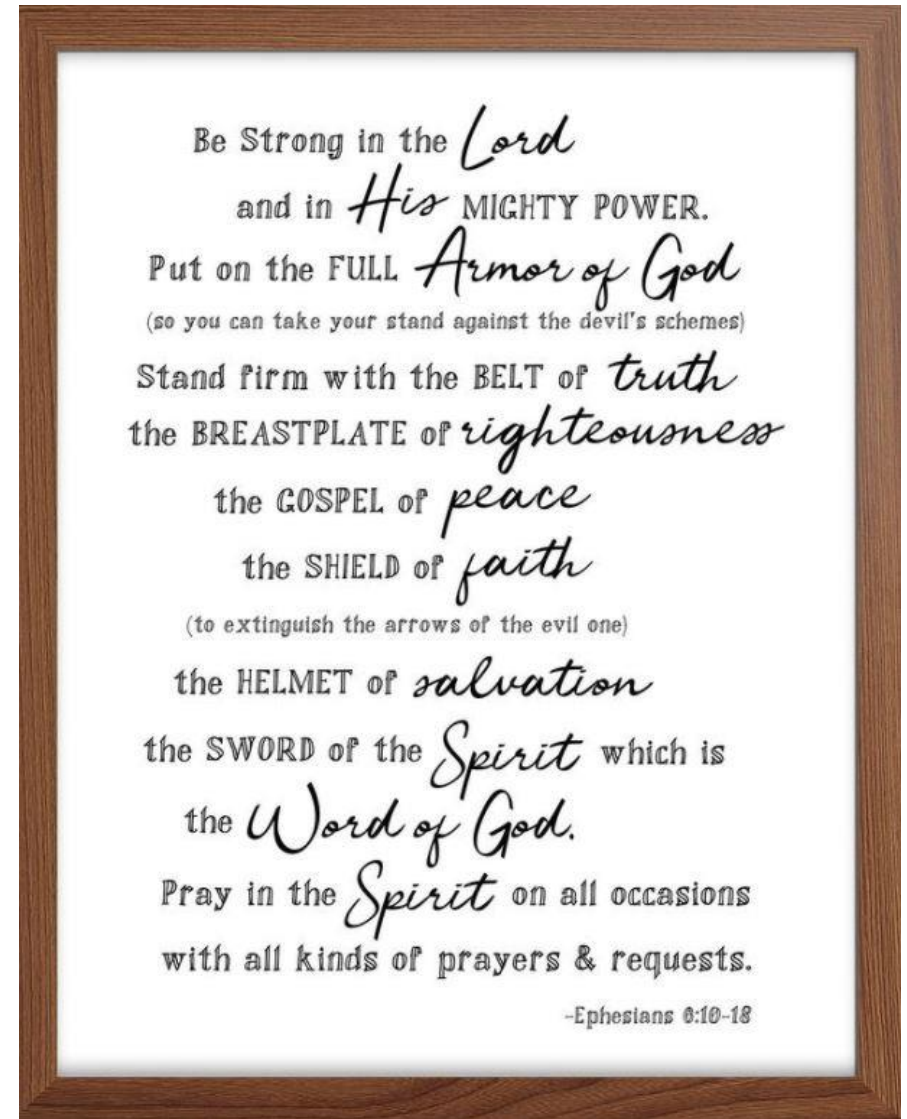 Be Strong in the Lord
and in His MIGHTY POWER.
Put on the FULL Armor of God
(so you can take your stand against the devil's schemes)
Stand firm with the BELT of truth
the BREASTPLATE of righteousness
the GOSPEL of peace
the SHIELD of faith
(to extinguish the arrows of the evil one)
the HELMET of salvation
the SWORD of the Spirit which is
the Word of God.
Pray in the Spirit on all occasions
with all kinds of prayers & requests.
-Ephesians 6:10-18